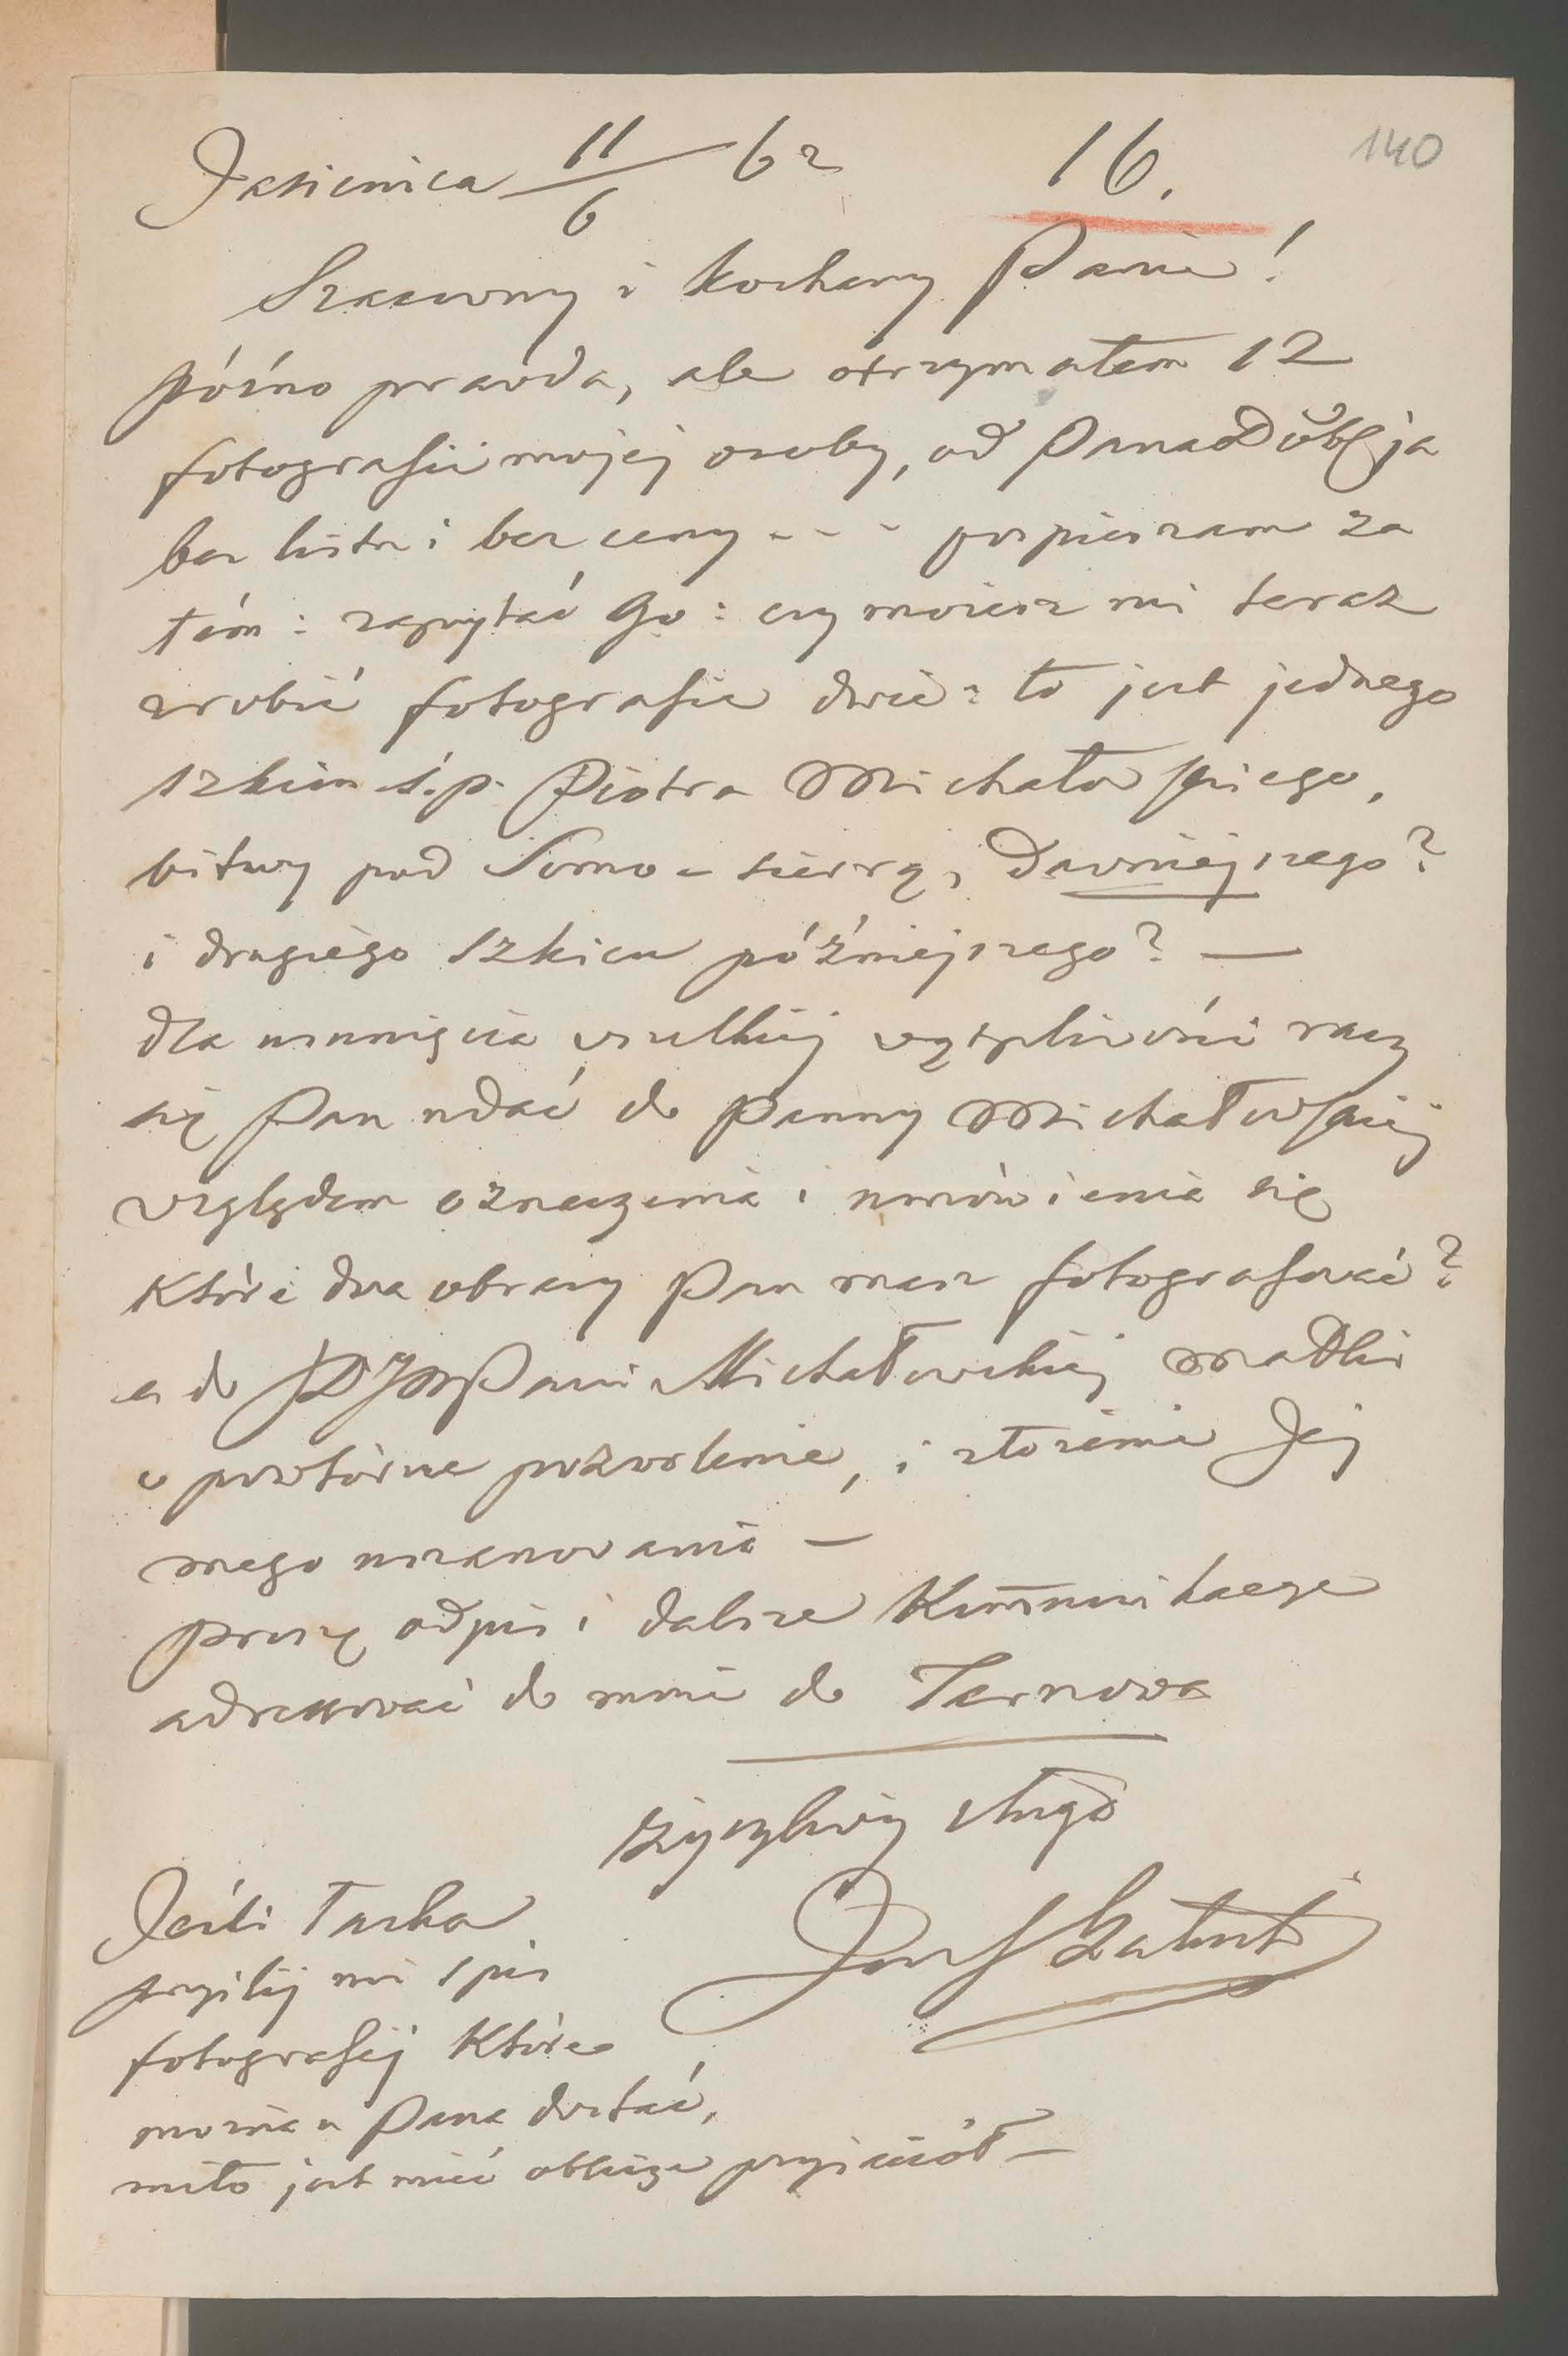 Jasienica 11/6 62 16. 140
Szanowny i kochany Panie!
późno prawda, ale otrzymałem 12
fotografii mojej osoby, od Pana
bez listu i bez ceny - - - pospieszam za
tém: zapytać Go: czy możesz mi teraz
zrobić fotografie dwie: to jest jednego
szkicu ś.p. Piotra Michałowskiego,
bitwy pod Somo-sierrą, dawniejszego?
i drugiego szkicu późniejszego? —
dla usunięcia wszelkiej wątpliwości racz
się Pan udać do Panny Michałowskiej
względem oznaczenia i umówienia się
które dwa obrazy Pan masz fotografować?
a do Pani Michałowskiej Matki
o powtórne pozwolenie, i złożenie Jej
mego uszanowania —
proszę odpis i dalsze Kom̄unikacye
adressować do mnie do Tarnowa
życzliwy sługa
Józef Załuski
Jeśli łaska
przyślij mi spis
fotografij które
można u Pana dostać,
miło jest mieć oblicze przyjaciół —